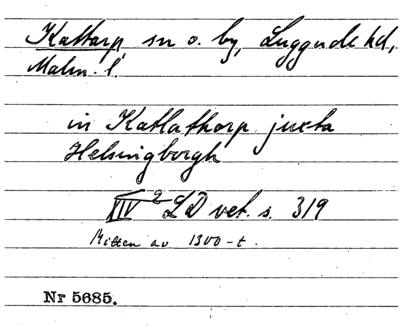 Kattarp sn o. by, Luggude hd,
Malm. l.
in Katlathorp juxta
Helsingborgh
XIV 2 LD vet. s. 319
Mitten av 1300-t.
Nr 5685.